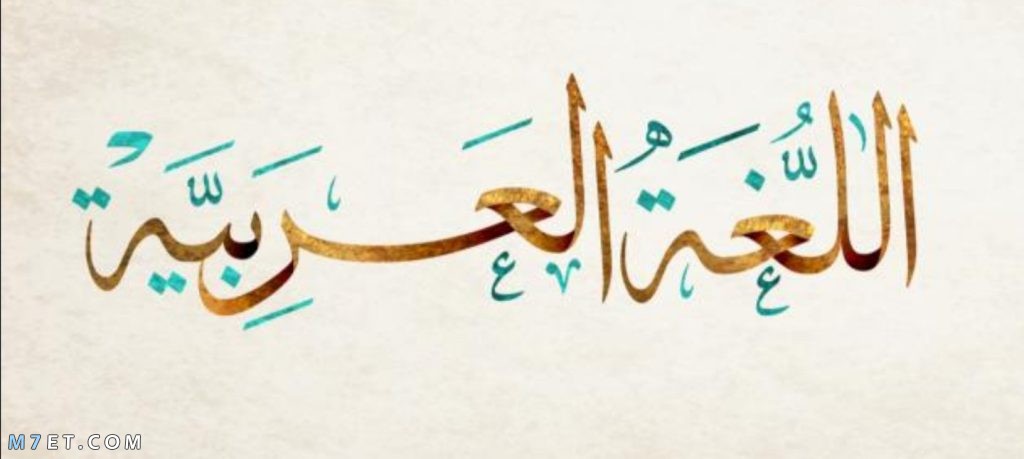 اللُّغَةُ العَرَبِيَّة
M7ET.COM